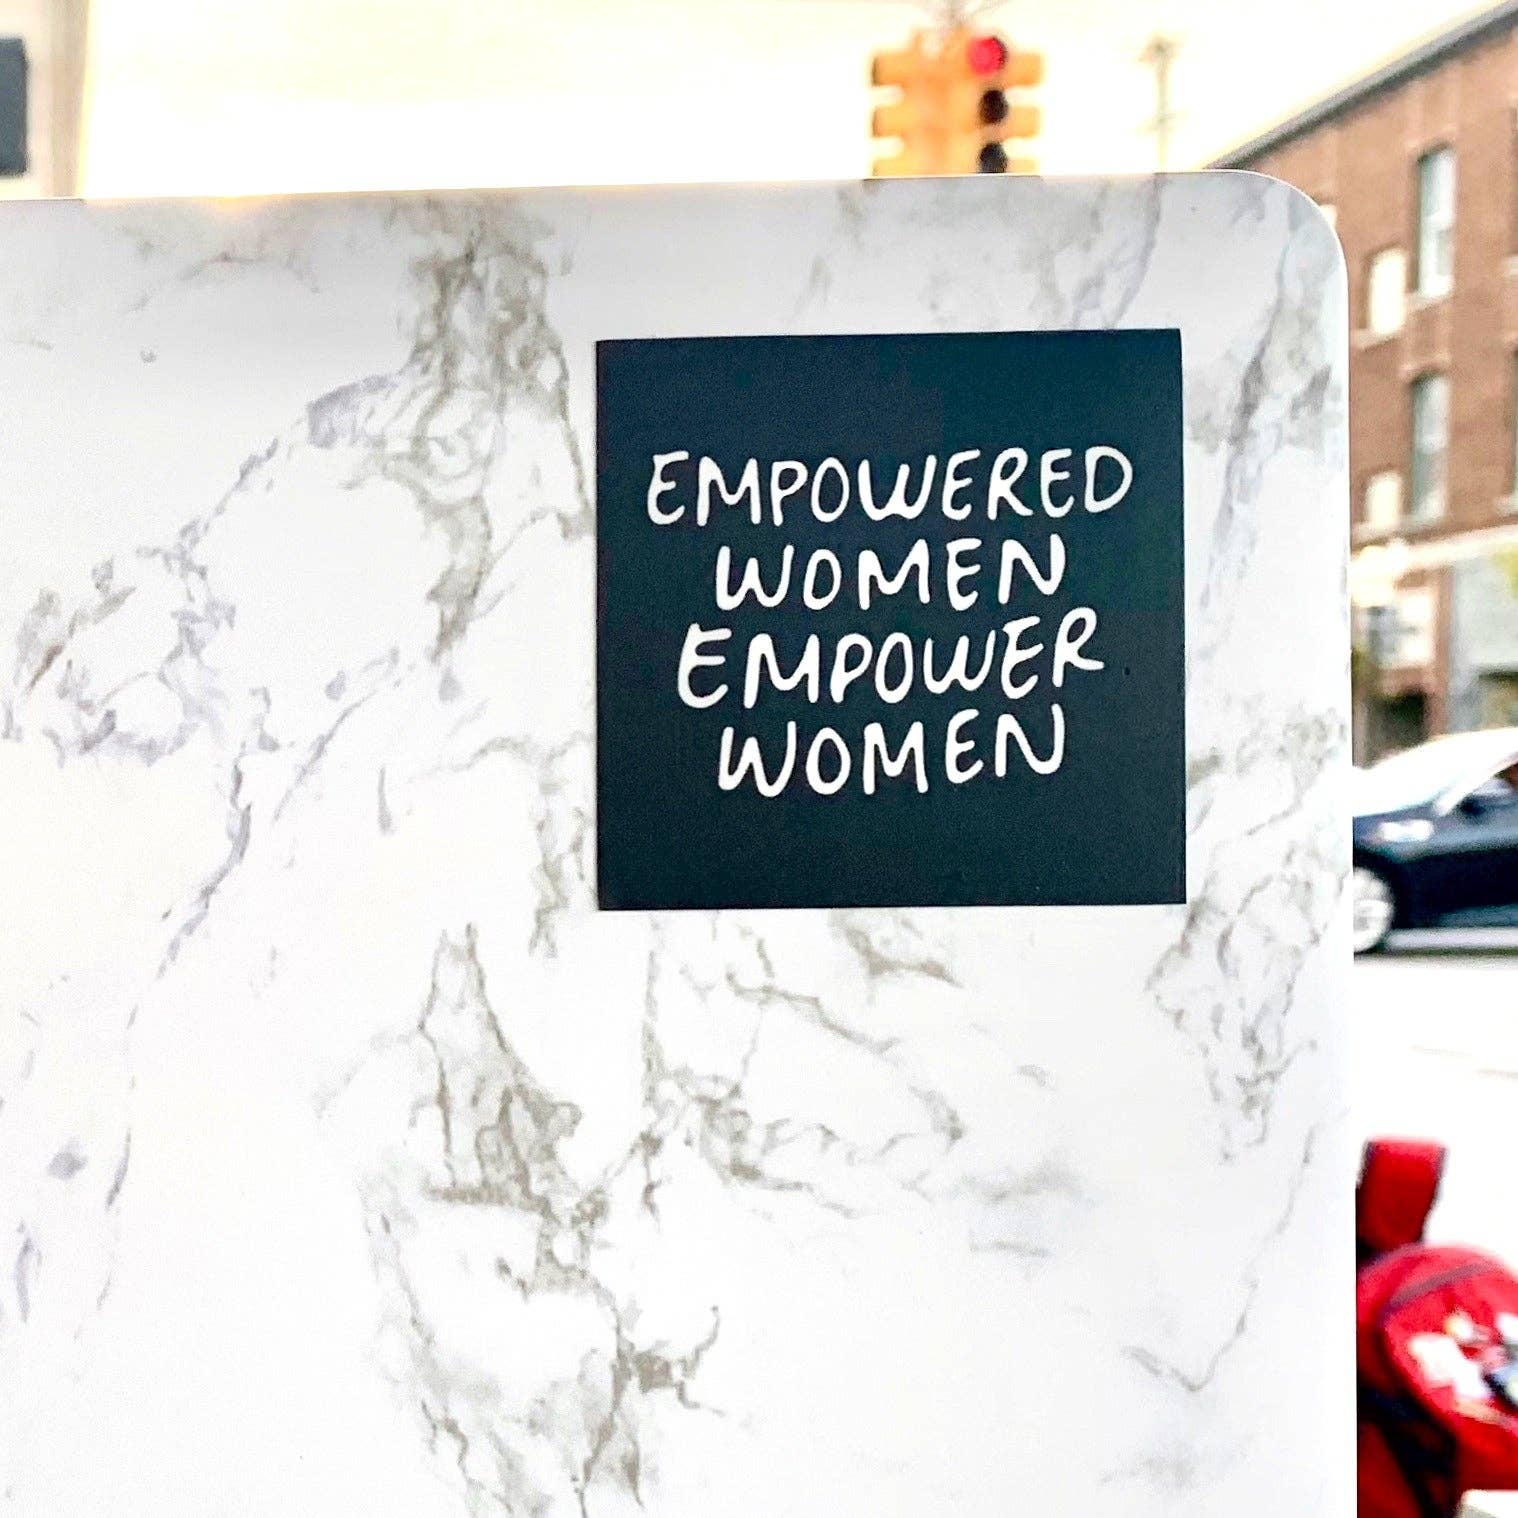 EMPOWERED
WOMEN
EMPOWER
WOMEN